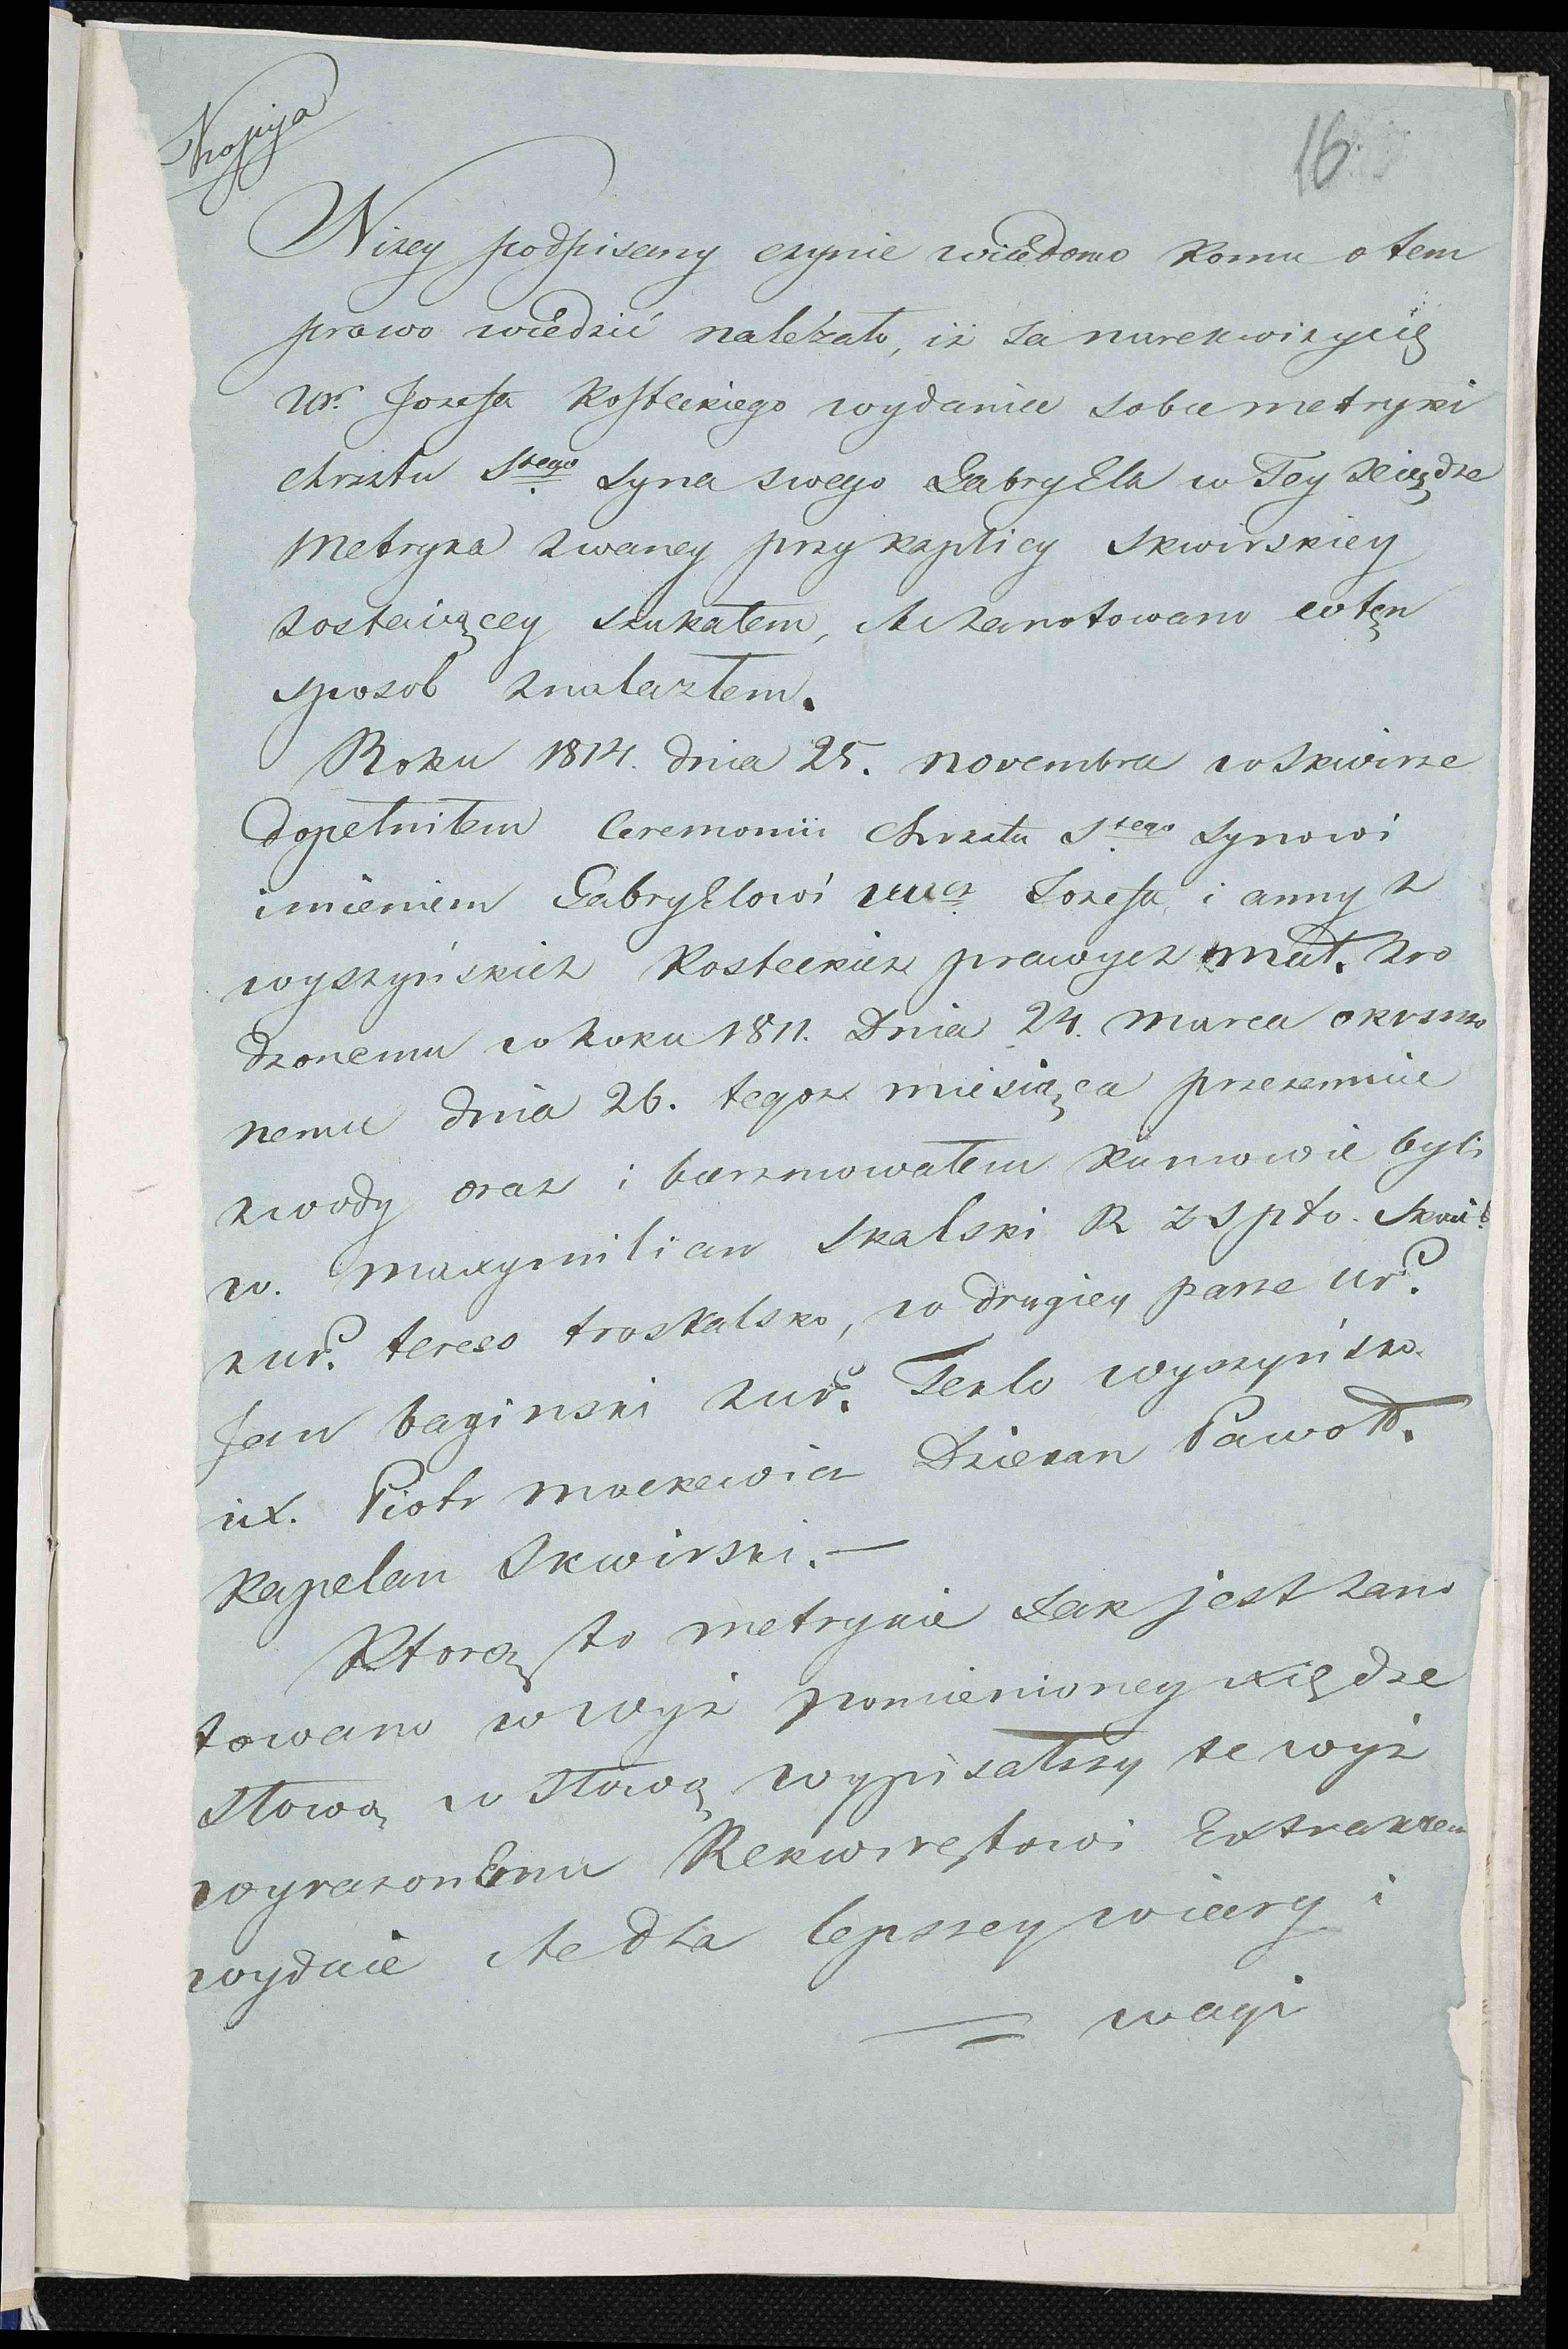 Kopija
16
Nizey podpisany czynie wiadomo komu o tem
prawo wiedzić należało, iż za narekwizycię
Ur. Jozefa Kosteckiego wydania sobie metryki
chrztu Stego syna swego Gabryela w Tey xciędze
Metryka zwaney przy kaplicy Skwirskiey
zostaiącey szukałem, A zanotowano wten
sposob znalazłem.
Roku 1814. dnia 25. novembra w Skwirze
dopełniłem Ceremonii Chrztu Stego Synowi
imieniem Gabryelowi Jozefa i anny z
wyszyńskich Kosteckich prawych mał. zro
dzonemu w Roku 1811. Dnia 24. Marca okrzczo
nemu dnia 26. tegoz miesiąca przezemnie
z wody oraz i bierzmowałem kumowie byli
w. Maxymilian Skalski
zur. tereso troskalsko, w drugiey parze ur.
Jan baginski zur. Teklo wyszyńsko
ix. Piotr Mackewicz Dziekan Pawoł.
Kapelan Skwirski. —
Ktorą to metrykie Jak jest zano
towano w wyż pomienioney xiędze
słowo w słowo wypisałszy te wyż
wyrazonemu Rekwirętowi Extraktem
wydaie A dla lepszey wiary i
wagi